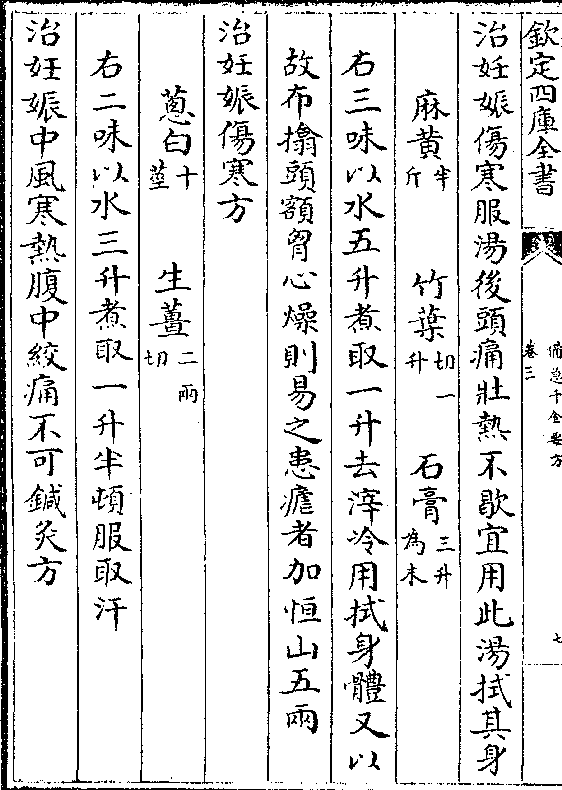 欽定四庫全書
備急千金要方
卷三
七
治妊娠傷寒服湯後頭痛壯熱不歇宜用此湯拭其身
麻黃半斤　竹葉切一升　石膏三升為末
右三味以水五升煮取一升去滓冷用拭身體又以
故布搨頭額胷心燥則易之患瘧者加恒山五兩
治妊娠傷寒方
蔥白十莖　生薑二兩切
右二味以水三升煮取一升半頓服取汗
治妊娠中風寒熱腹中絞痛不可鍼灸方